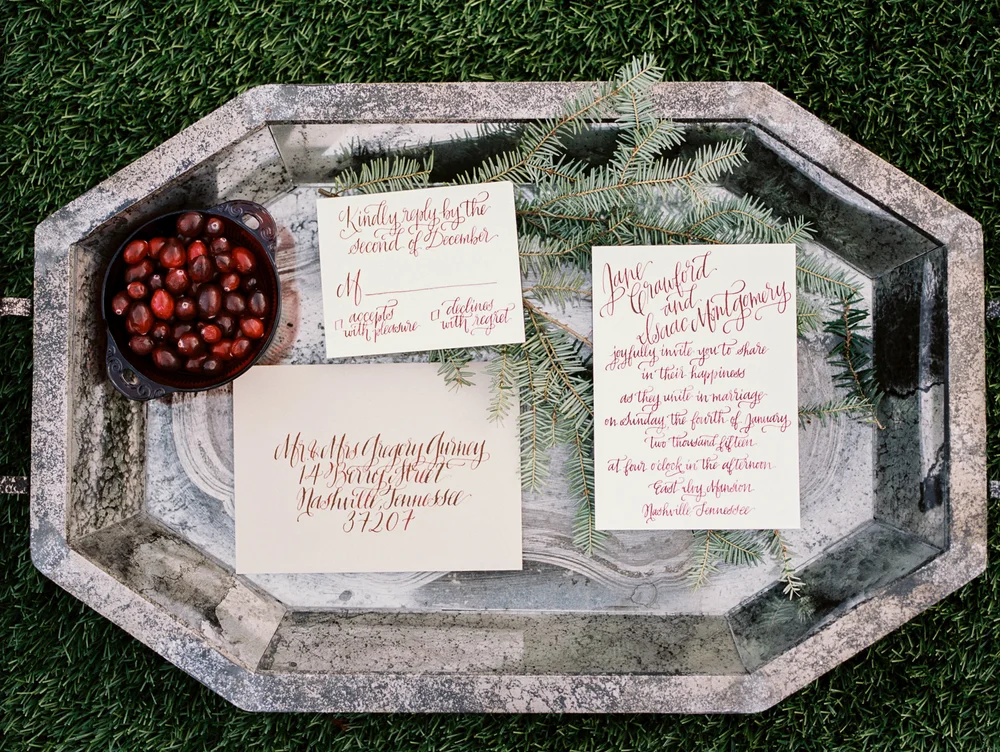 Kindly reply by the
second of December
M
accepts
with pleasure
declines
with regret
Jane
Crawford
and
Isaac Montgomery
joyfully invite you to share
in their happiness
as they unite in marriage
on Sunday the fourth of January
two thousand fifteen
at four o'clock in the afternoon
East Ivy Mansion
Nashville Tennessee
Mr & Mrs Gregory Gurney
14 Berry Street
Nashville, Tennessee
37207